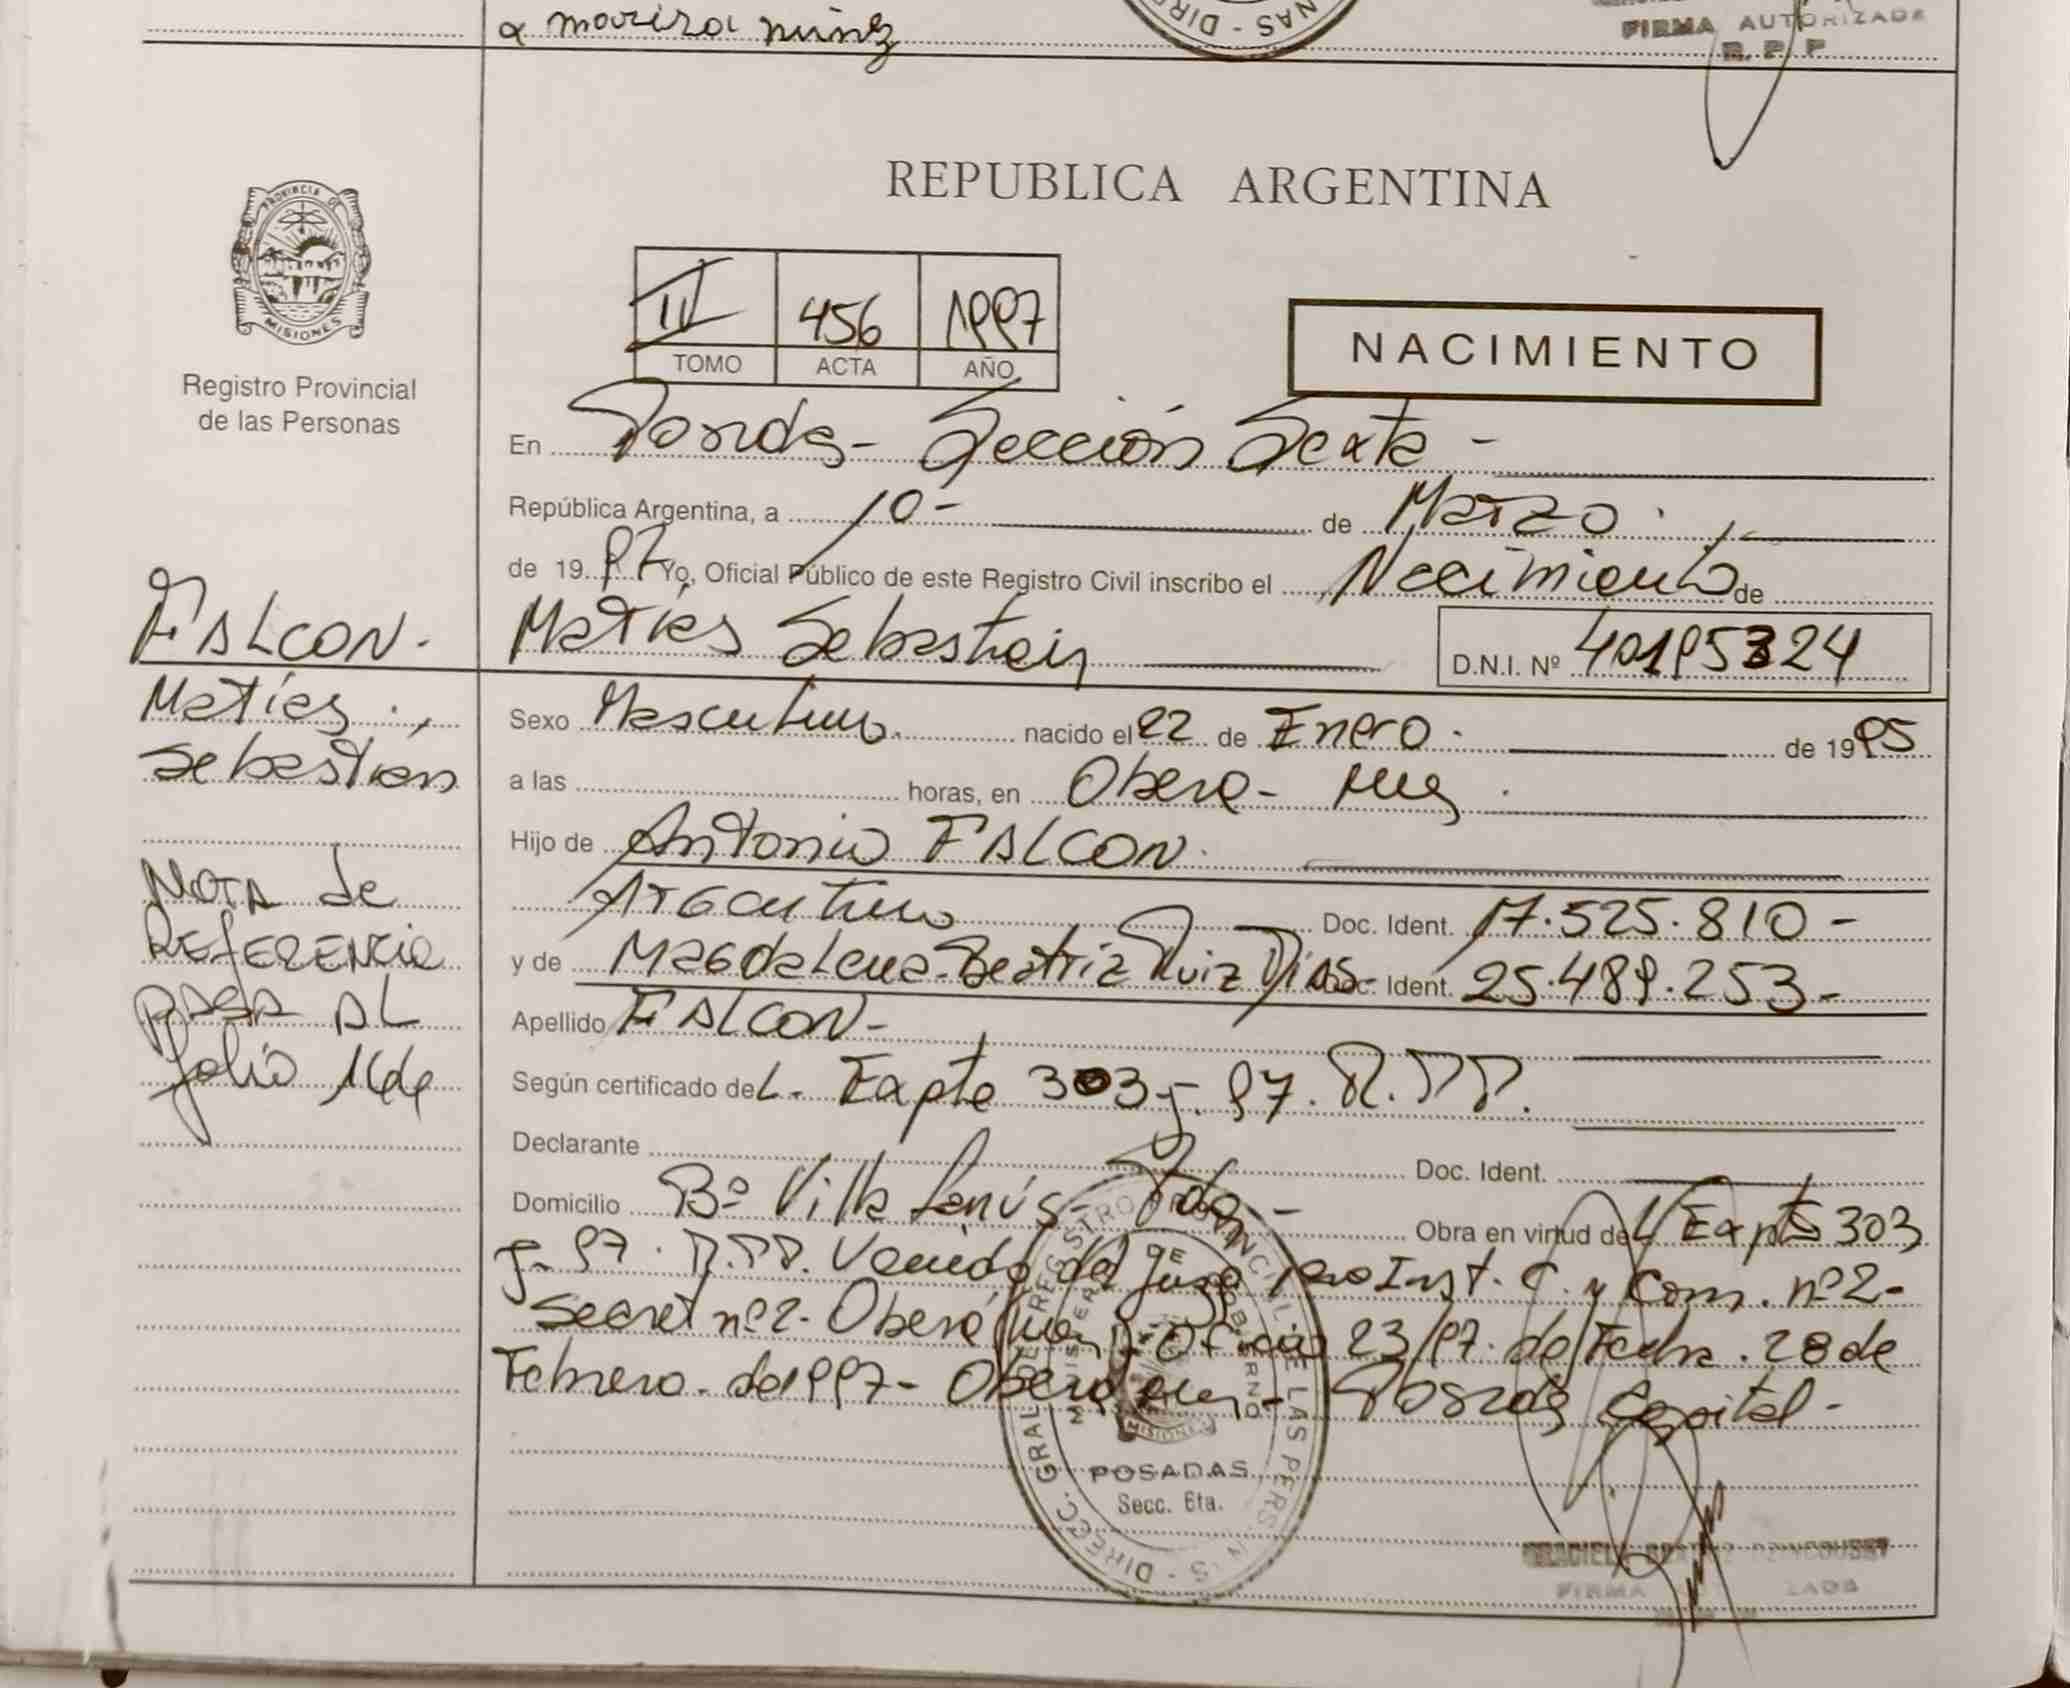 a marisa
DIRE
NAS
FIRMA AUTORIZADA
R. P. P.
PROVINCIA DE
MISIONES
Registro Provincial
de las Personas
REPUBLICA ARGENTINA
III 456 1997
TOMO ACTA AÑO
NACIMIENTO
En Posadas - Sección Sexta -
República Argentina, a 10 - de Marzo.
de 1997 Yo, Oficial Público de este Registro Civil inscribo el Nacimiento de
FALCON.
Matías Sebastián
D.N.I. Nº 40195324
Matías
Sebastián
Sexo Masculino. nacido el 22 de Enero. de 1995
a las horas, en Oberá - Mnes
Hijo de Antonio FALCON.
Argentino Doc. Ident. 17.525.810 -
y de Magdalena Beatriz Ruiz Dias Doc. Ident. 25.489.253 -
Apellido FALCON -
Según certificado deL. Expte 303 - J - 97. R.P.P.
NOTA de
REFERENCIA
PASA AL
folio
Declarante Doc. Ident.
Domicilio Bº Villa Lanús - Pdas - Obra en virtud del Expte 303
J - 97. R.P.P. Venido del Juzg Inst. C. y Com. nº 2 -
Secret nº 2 - Oberá (Mnes) - Oficio 23/97. de Fecha. 28 de
Febrero - de 1997 - Oberá Mnes - Posadas Capital -
DIRECC. GRAL. DE REGISTRO PROVINCIAL DE LAS PERSONAS
MINISTERIO DE GOBIERNO
MISIONES
POSADAS
Secc. 6ta.
FIRMA